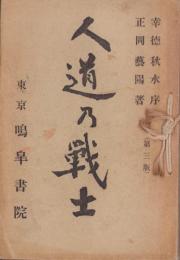 幸德秋水序
正岡藝陽著
(第三版)
人道乃戰士
東京 鳴皐書院